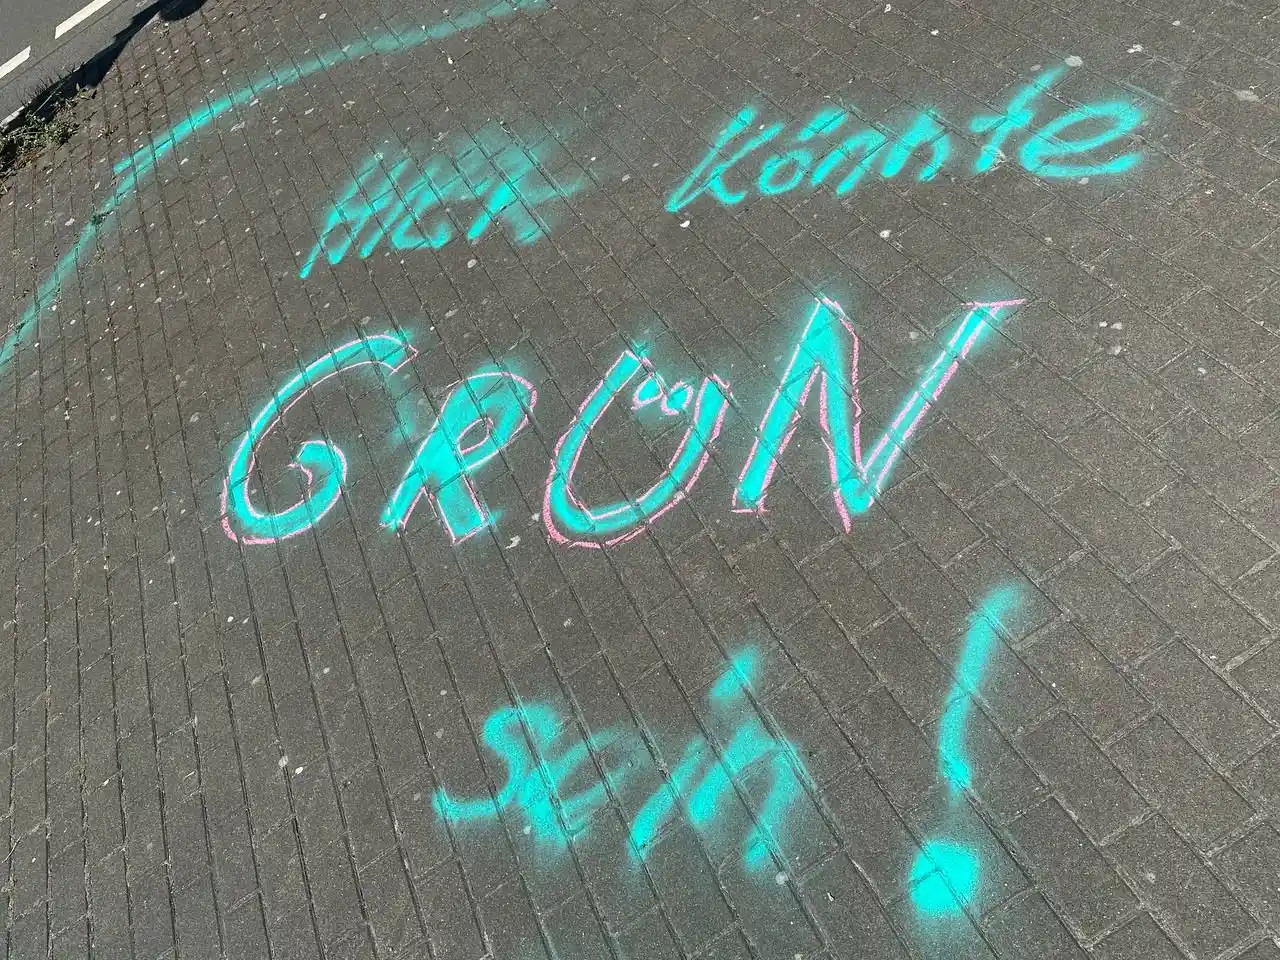 Hier könnte
GRÜN
sein!